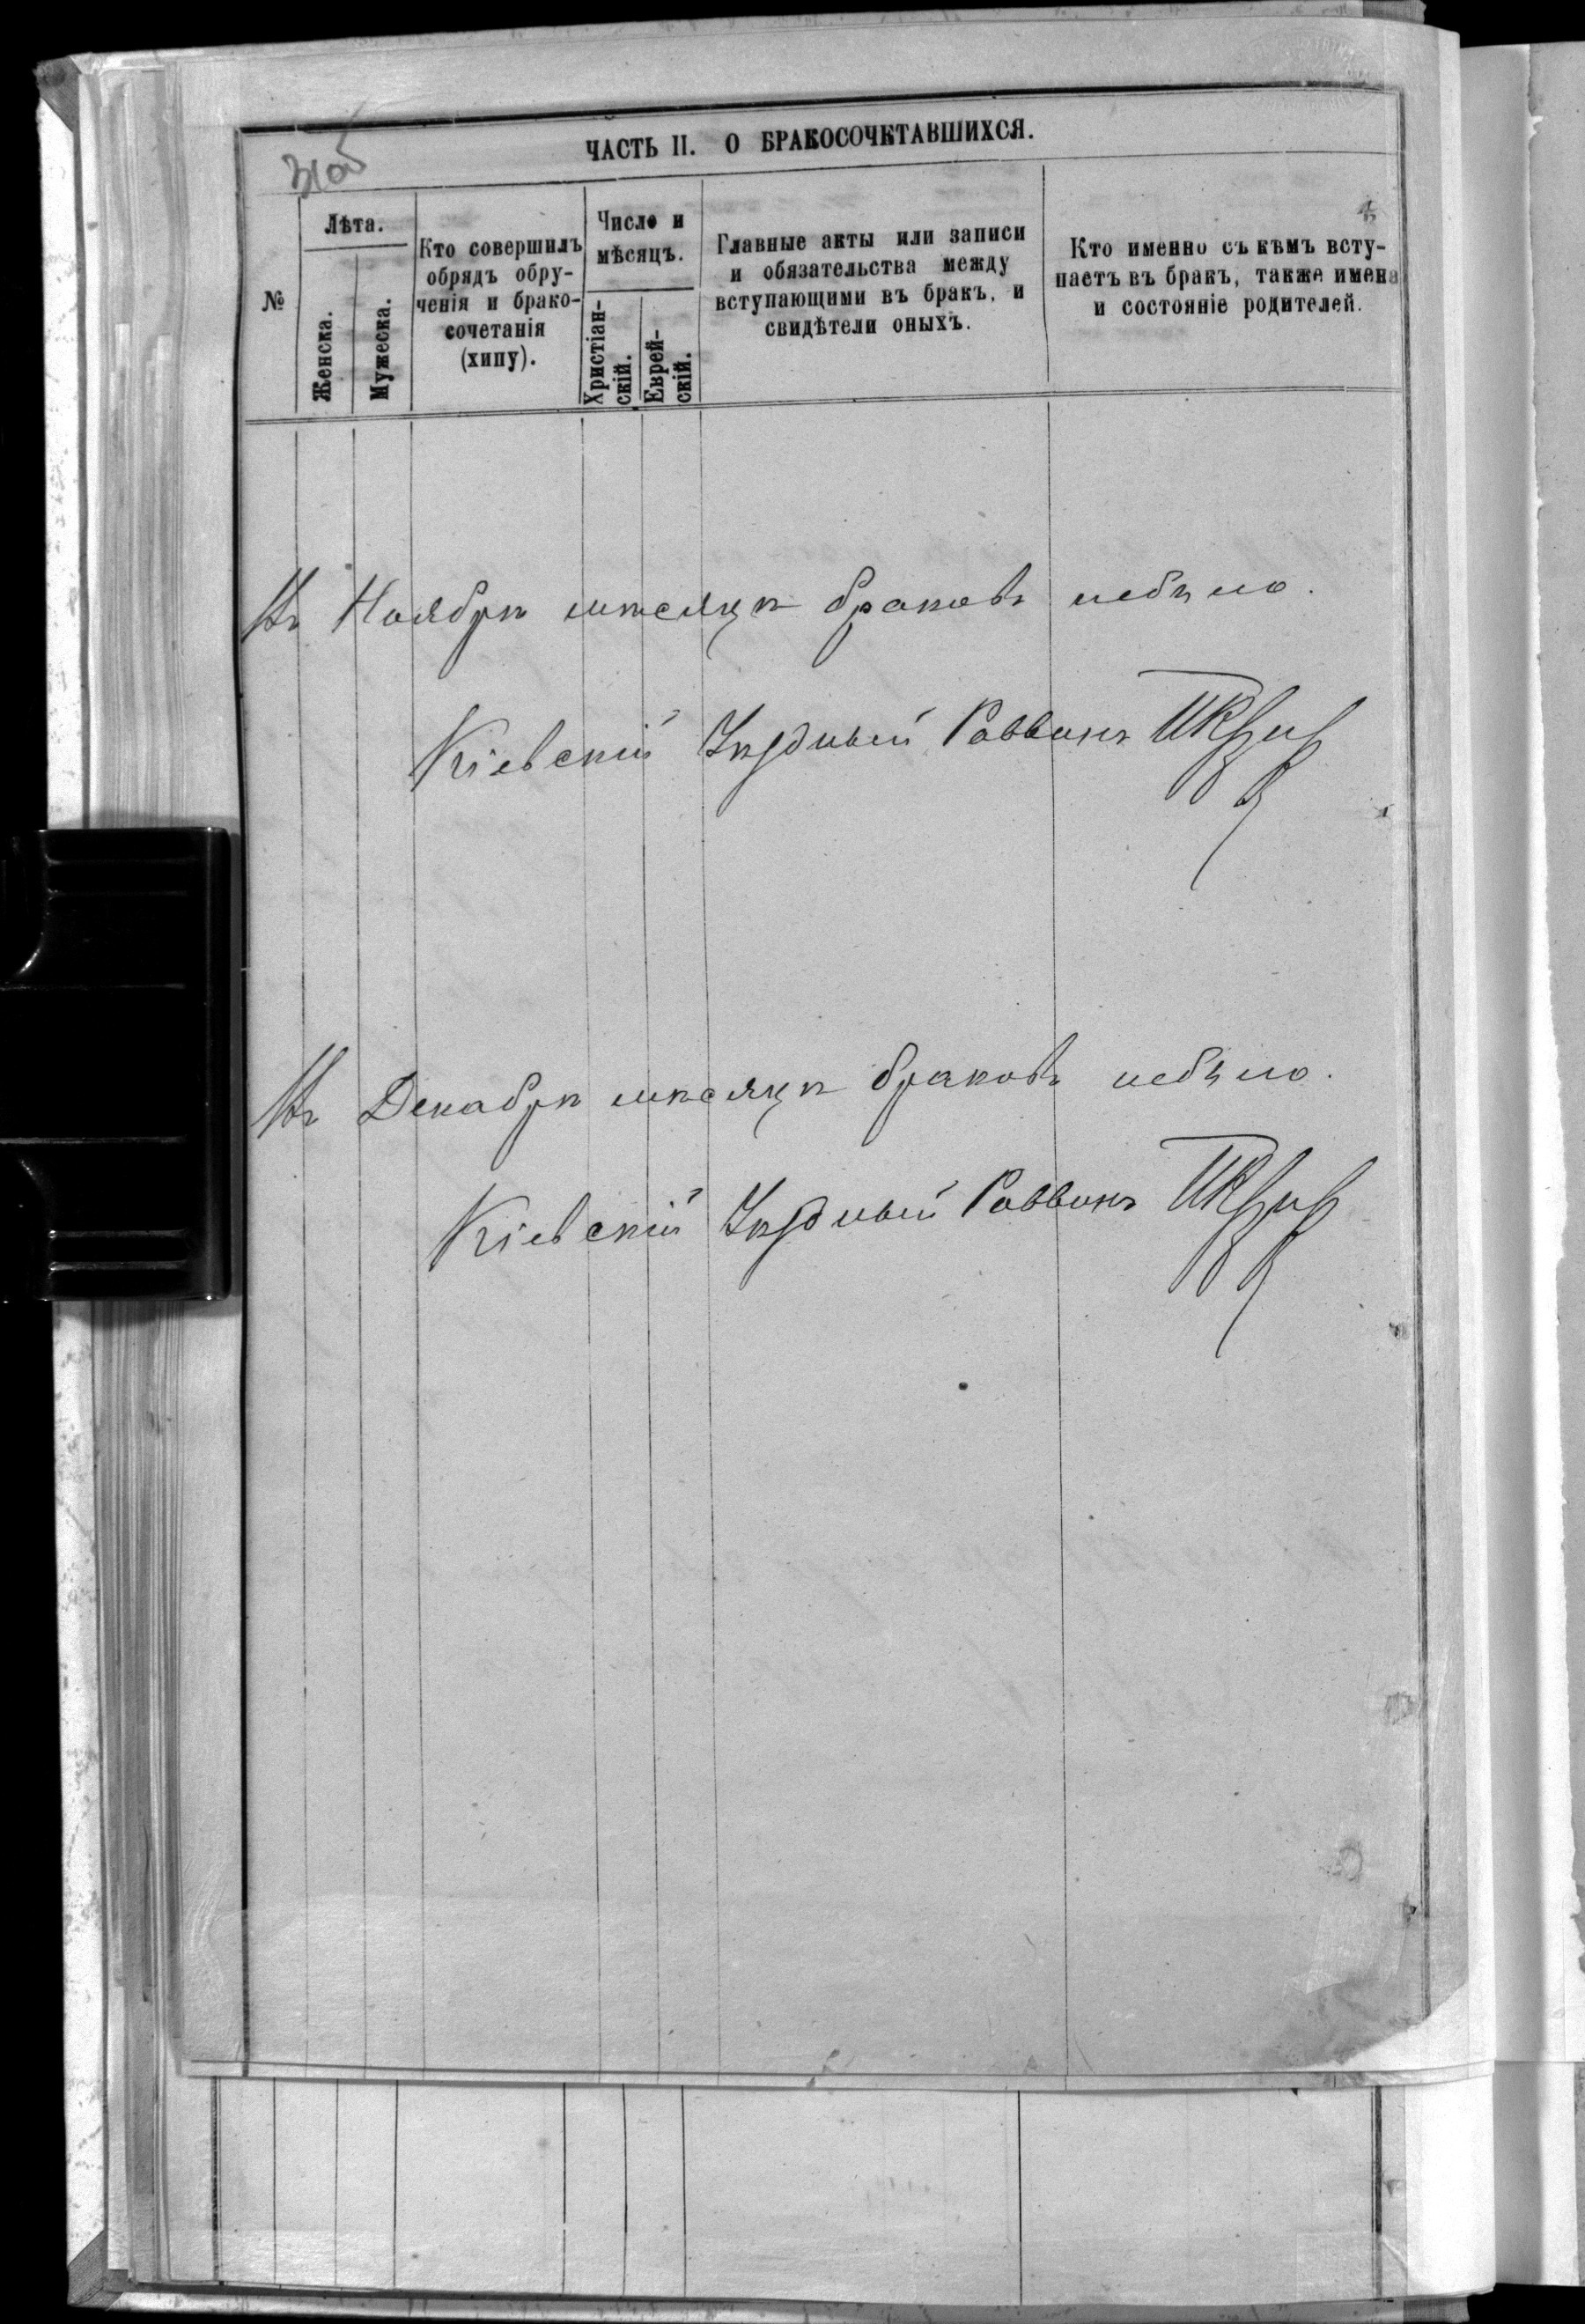 31об
ЧАСТЬ II. О БРАКОСОЧЕТАВШИХСЯ.
№
Лѣта.
Женска.
Мужеска.
Кто совершилъ
обрядъ обру-
ченія и брако-
сочетанія
(хипу).
Число и
мѣсяцъ.
Христіан-
скій.
Еврей-
скій.
Главные акты или записи
и обязательства между
вступающими въ бракъ, и
свидѣтели оныхъ.
Кто именно съ кѣмъ всту-
паетъ въ бракъ, также имена
и состояніе родителей.
Въ Ноябрѣ мѣсяцѣ браковъ небыло.
Кіевскій Уѣздный Раввинъ
Въ Декабрѣ мѣсяцѣ браковъ небыло.
Кіевскій Уѣздный Раввинъ